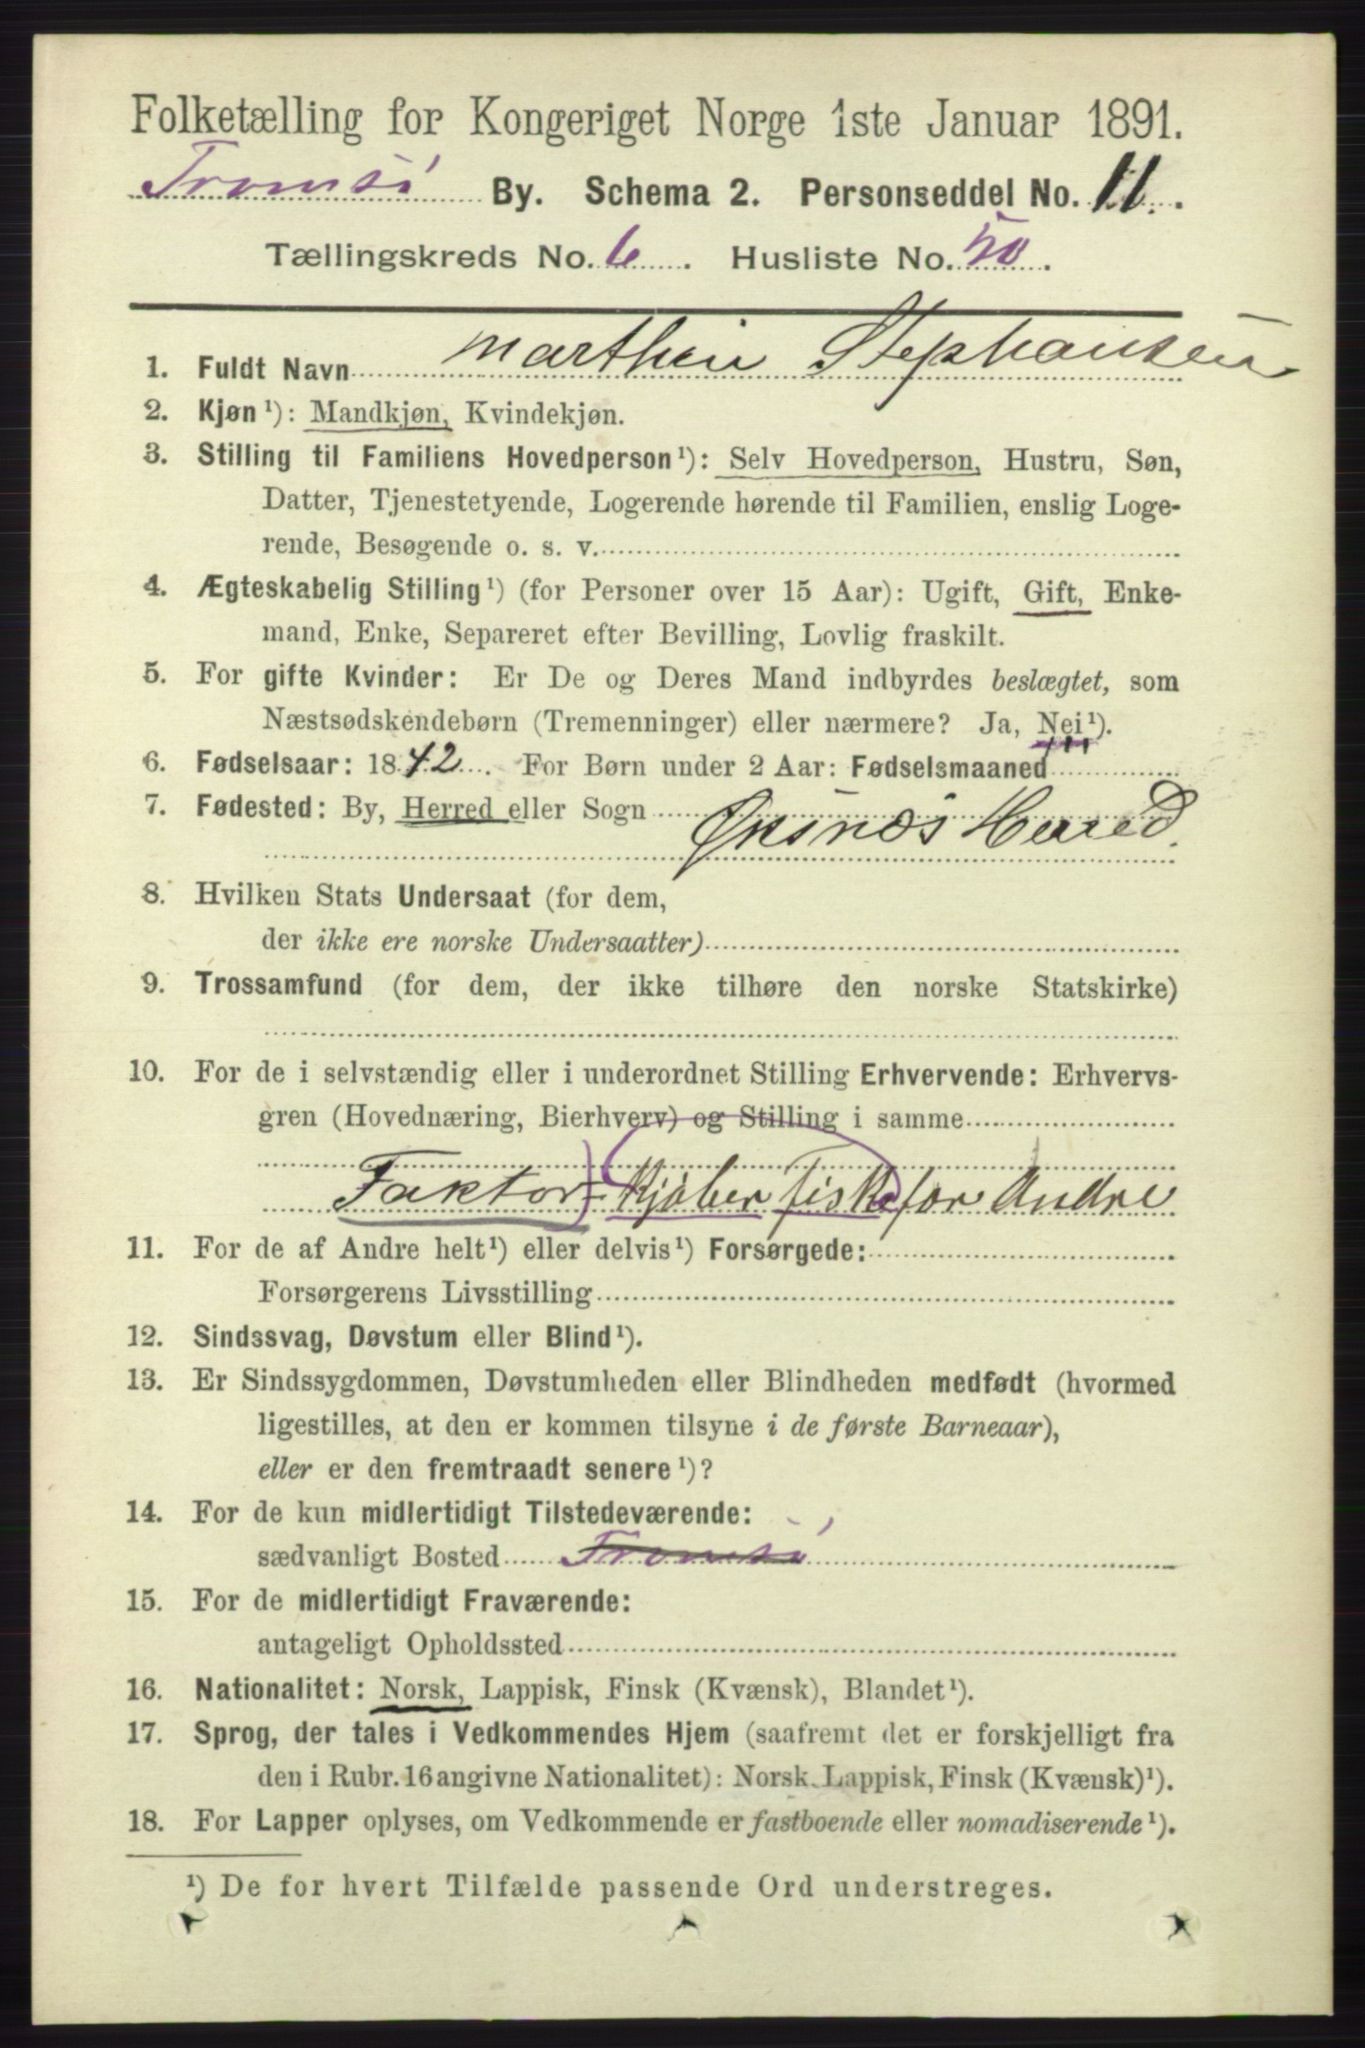 Folketælling for Kongeriget Norge 1ste Januar 1891.
Tromsö By. Schema 2. Personseddel No. 11.
Tællingskreds No. 6. Husliste No. 50.
1. Fuldt Navn Marthin Stephansen
2. Kjøn¹): Mandkjøn, Kvindekjøn.
3. Stilling til Familiens Hovedperson¹): Selv Hovedperson, Hustru, Søn,
Datter, Tjenestetyende, Logerende hørende til Familien, enslig Loge-
rende, Besøgende o. s. v.
4. Ægteskabelig Stilling¹) (for Personer over 15 Aar): Ugift, Gift, Enke-
mand, Enke, Separeret efter Bevilling, Lovlig fraskilt.
5. For gifte Kvinder: Er De og Deres Mand indbyrdes beslægtet, som
Næstsødskendebørn (Tremenninger) eller nærmere? Ja, Nei¹).
6. Fødselsaar: 1842. For Børn under 2 Aar: Fødselsmaaned
7. Fødested: By, Herred eller Sogn Øksnæs Herred.
8. Hvilken Stats Undersaat (for dem,
der ikke ere norske Undersaatter)
9. Trossamfund (for dem, der ikke tilhøre den norske Statskirke)
10. For de i selvstændig eller i underordnet Stilling Erhvervende: Erhvervs-
gren (Hovednæring, Bierhverv) og Stilling i samme
Faktor) Kjøber Fisk for Andre
11. For de af Andre helt¹) eller delvis¹) Forsørgede:
Forsørgerens Livsstilling
12. Sindssvag, Døvstum eller Blind¹).
13. Er Sindssygdommen, Døvstumheden eller Blindheden medfødt (hvormed
ligestilles, at den er kommen tilsyne i de første Barneaar),
eller er den fremtraadt senere¹)?
14. For de kun midlertidigt Tilstedeværende:
sædvanligt Bosted Tromsö
15. For de midlertidigt Fraværende:
antageligt Opholdssted
16. Nationalitet: Norsk, Lappisk, Finsk (Kvænsk), Blandet¹).
17. Sprog, der tales i Vedkommendes Hjem (saafremt det er forskjelligt fra
den i Rubr. 16 angivne Nationalitet): Norsk, Lappisk, Finsk (Kvænsk)¹).
18. For Lapper oplyses, om Vedkommende er fastboende eller nomadiserende¹).
¹) De for hvert Tilfælde passende Ord understreges.